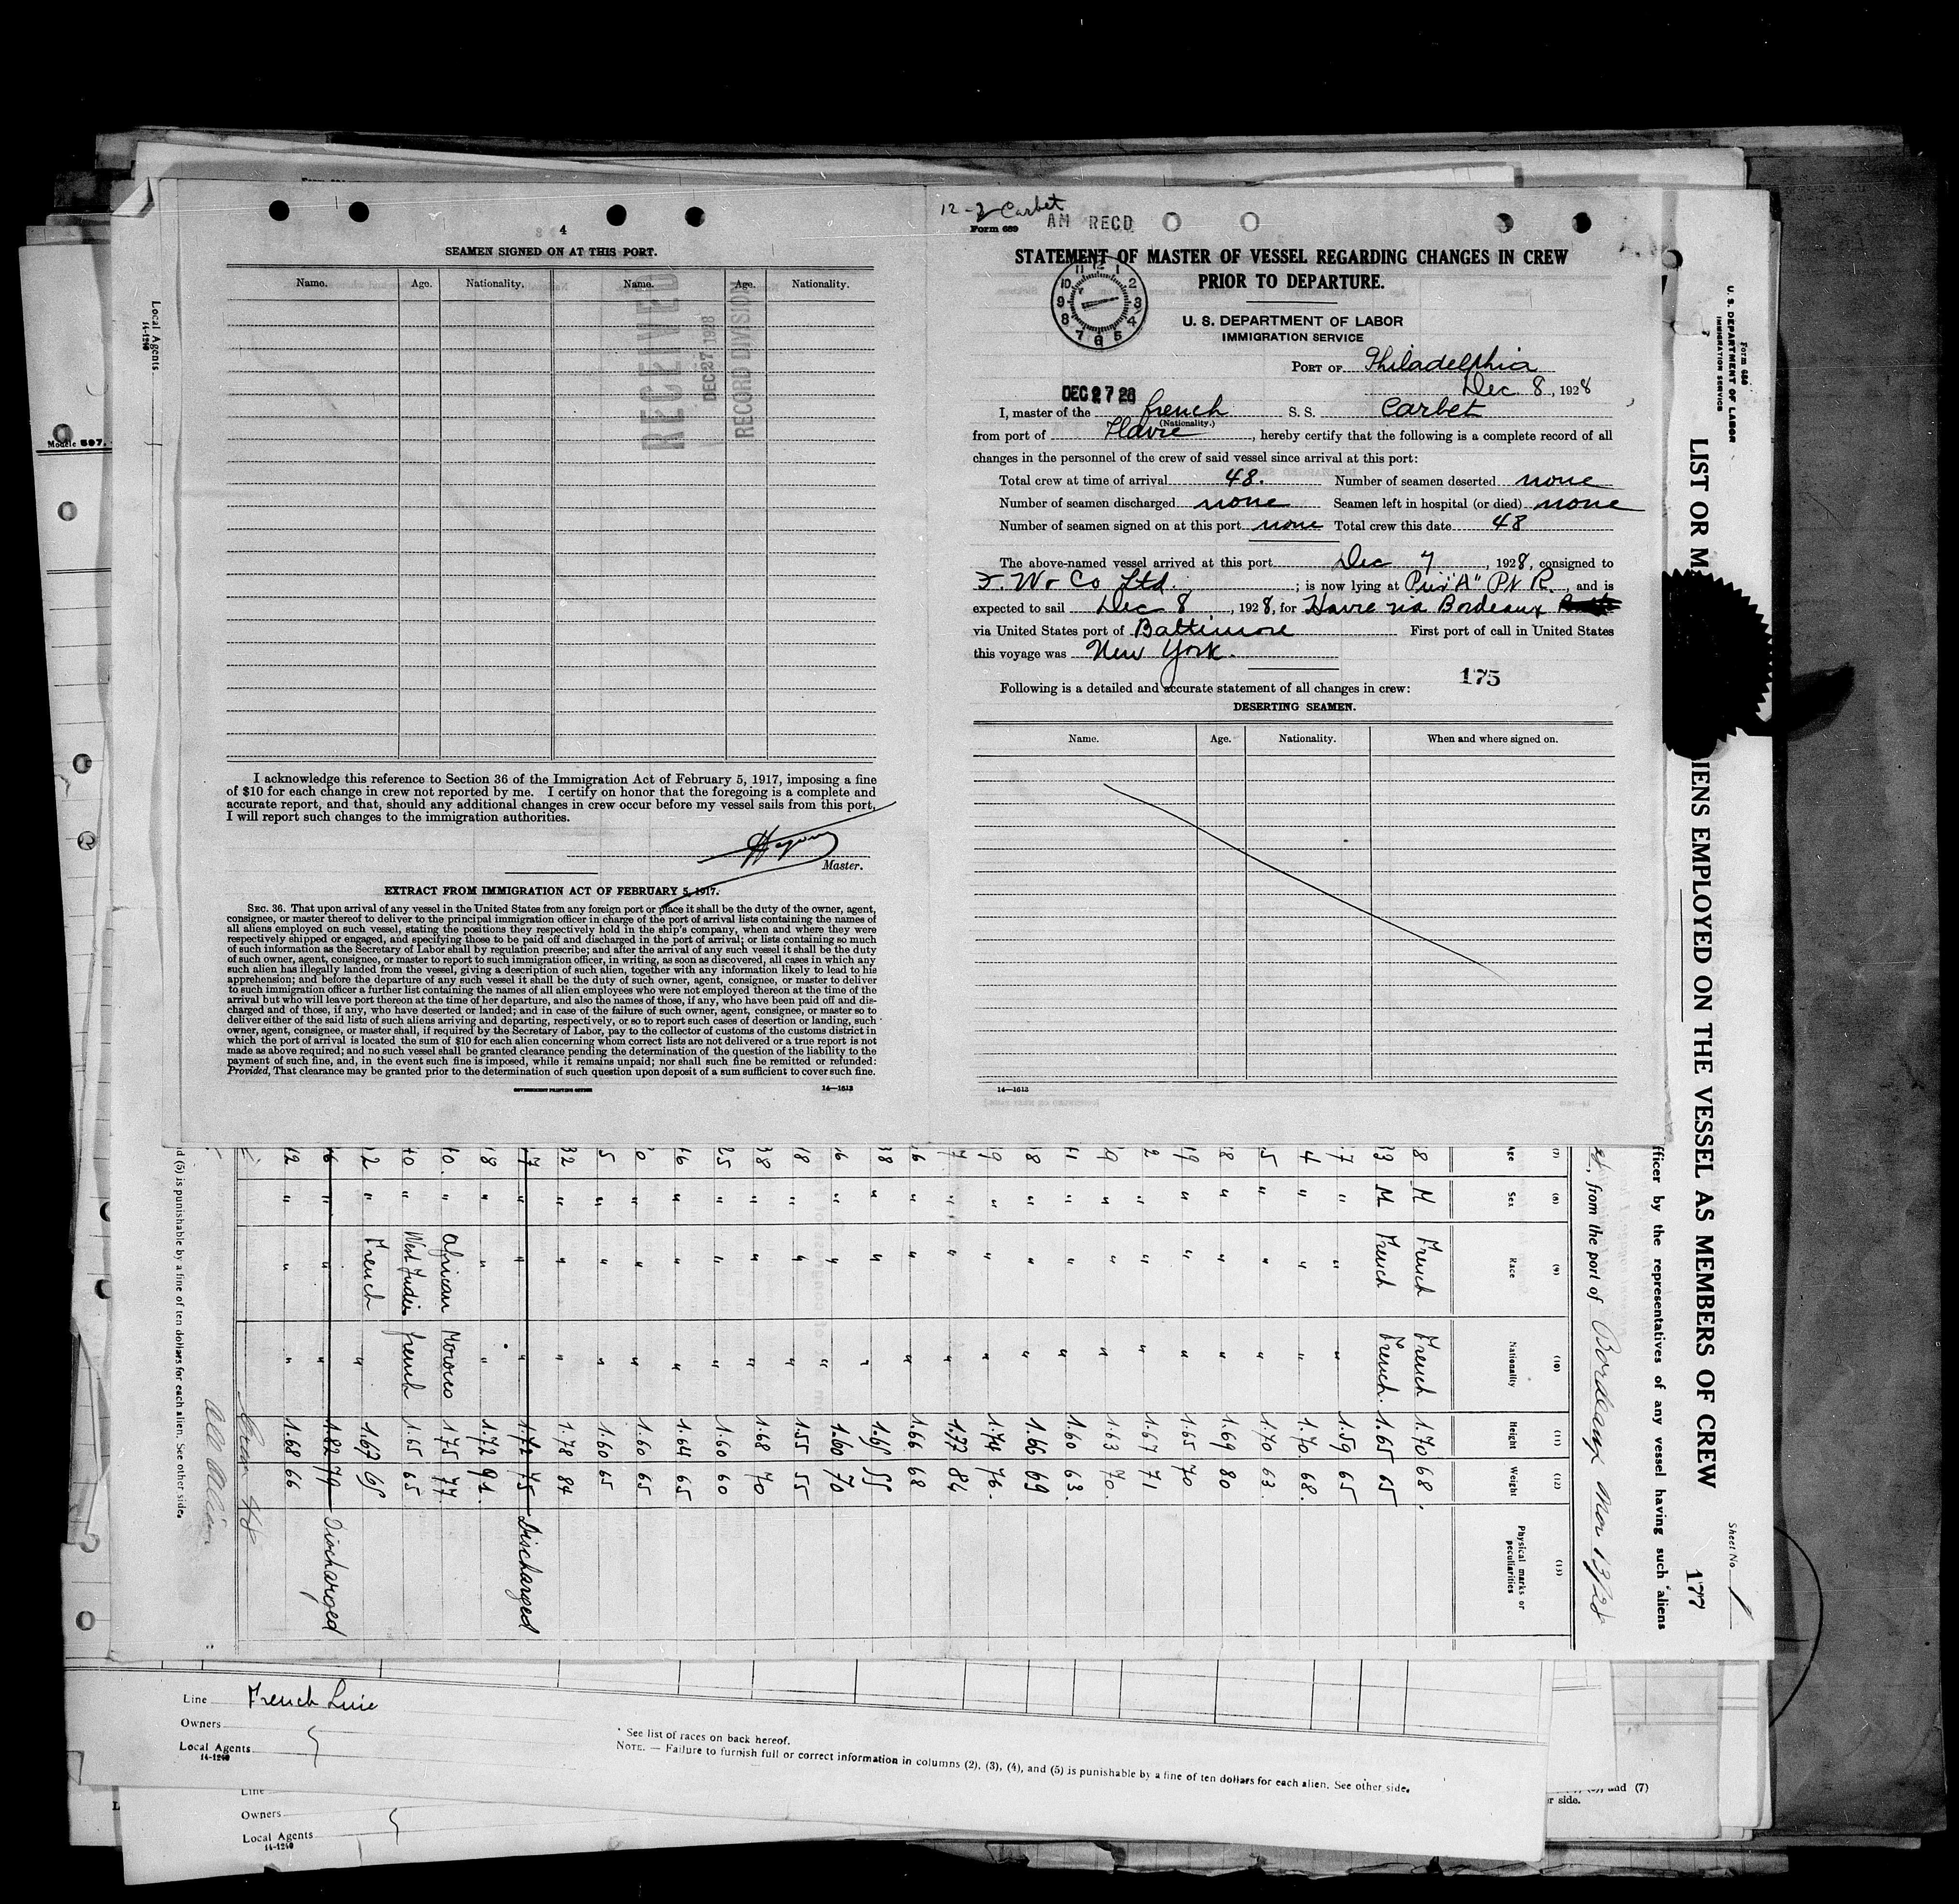 4
SEAMEN SIGNED ON AT THIS PORT.
Name. Age. Nationality. Name. Age. Nationality.
RECEIVED
DEC 27 1928
RECORD DIVISION
I acknowledge this reference to Section 36 of the Immigration Act of February 5, 1917, imposing a fine
of $10 for each change in crew not reported by me. I certify on honor that the foregoing is a complete and
accurate report, and that, should any additional changes in crew occur before my vessel sails from this port,
I will report such changes to the immigration authorities.
Master.
EXTRACT FROM IMMIGRATION ACT OF FEBRUARY 5, 1917.
SEC. 36. That upon arrival of any vessel in the United States from any foreign port or place it shall be the duty of the owner, agent,
consignee, or master thereof to deliver to the principal immigration officer in charge of the port of arrival lists containing the names of
all aliens employed on such vessel, stating the positions they respectively hold in the ship's company, when and where they were
respectively shipped or engaged, and specifying those to be paid off and discharged in the port of arrival; or lists containing so much
of such information as the Secretary of Labor shall by regulation prescribe; and after the arrival of any such vessel it shall be the duty
of such owner, agent, consignee, or master to report to such immigration officer, in writing, as soon as discovered, all cases in which any
such alien has illegally landed from the vessel, giving a description of such alien, together with any information likely to lead to his
apprehension; and before the departure of any such vessel it shall be the duty of such owner, agent, consignee, or master to deliver
to such immigration officer a further list containing the names of all alien employees who were not employed thereon at the time of the
arrival but who will leave port thereon at the time of her departure, and also the names of those, if any, who have been paid off and dis-
charged and of those, if any, who have deserted or landed; and in case of the failure of such owner, agent, consignee, or master so to
deliver either of the said lists of such aliens arriving and departing, respectively, or so to report such cases of desertion or landing, such
owner, agent, consignee, or master shall, if required by the Secretary of Labor, pay to the collector of customs of the customs district in
which the port of arrival is located the sum of $10 for each alien concerning whom correct lists are not delivered or a true report is not
made as above required; and no such vessel shall be granted clearance pending the determination of the question of the liability to the
payment of such fine, and, in the event such fine is imposed, while it remains unpaid; nor shall such fine be remitted or refunded:
Provided, That clearance may be granted prior to the determination of such question upon deposit of a sum sufficient to cover such fine.
GOVERNMENT PRINTING OFFICE 14—1613
12-7 Carbet
AM RECD
Form 689
STATEMENT OF MASTER OF VESSEL REGARDING CHANGES IN CREW
PRIOR TO DEPARTURE.
12 1 2 3 4 5 6 7 8 9 10 11
U. S. DEPARTMENT OF LABOR
IMMIGRATION SERVICE
PORT OF Philadelphia
Dec. 8, 1928
DEC 27 28
I, master of the french S. S. Carbet
(Nationality.)
from port of Havre, hereby certify that the following is a complete record of all
changes in the personnel of the crew of said vessel since arrival at this port:
Total crew at time of arrival 48. Number of seamen deserted none
Number of seamen discharged none Seamen left in hospital (or died) none
Number of seamen signed on at this port none Total crew this date 48
The above-named vessel arrived at this port Dec 7, 1928, consigned to
F. W & Co Ltd.; is now lying at Pier "A" P. R., and is
expected to sail Dec 8, 1928, for Havre via Bordeaux
via United States port of Baltimore First port of call in United States
this voyage was New York.
175
Following is a detailed and accurate statement of all changes in crew:
DESERTING SEAMEN.
Name. Age. Nationality. When and where signed on.
14—1613
Local Agents
14-1240
Modele 597.
Form 680
U. S. DEPARTMENT OF LABOR
IMMIGRATION SERVICE
LIST OR MA
IENS EMPLOYED ON THE VESSEL AS MEMBERS OF CREW
Sheet No. 1
177
fficer by the representatives of any vessel having such aliens
, from the port of Bordeaux Nov 13/28
(7) (8) (9) (10) (11) (12) (13)
Age Sex Race Nationality Height Weight Physical marks or peculiarities
8 M French French 1.70 68.
39 M French French. 1.65 65
7 " " " 1.59 65
4 " " " 1.70. 68.
5 " " " 1.70 63.
8 " " " 1.69 80
19 " " " 1.65 70
2 " " " 1.67 71
9 " " " 1.63 70.
41 " " " 1.60 63.
8 " " " 1.66 69
9 " " " 1.74 76.
7 " " " 1.77 84
6 " " " 1.66 68
38 " " " 1.65 55
16 " " " 1.60 70
18 " " " 1.55 55
38 " " " 1.68 70
25 " " " 1.60 60
16 " " " 1.64 65
0 " " " 1.60 65
5 " " " 1.60 65
32 " " " 1.78 84
17 " " " 1.72 75 Discharged
18 " " " 1.72 91.
10. " African Morocco 1.75 77.
10 " West Indies french 1.65 65
12 " French " 1.67 65
16 " " " 1.82 79 Discharged
12 " " " 1.68 66
Crew 48
All Alien
d (5) is punishable by a fine of ten dollars for each alien. See other side.
Line French Line
Owners
Local Agents
14-1240
* See list of races on back hereof.
NOTE. — Failure to furnish full or correct information in columns (2), (3), (4), and (5) is punishable by a fine of ten dollars for each alien. See other side.
Line
Owners
Local Agents
14-1240
and (7)
r side.